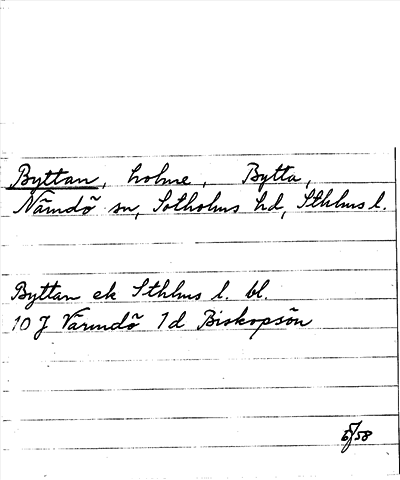 Byttan, holme, Bytta,
Nämdö sn, Sotholms hd, Sthlms l.
Byttan ek Sthlms l. bl.
10 J Värmdö 1d Biskopsön
/58